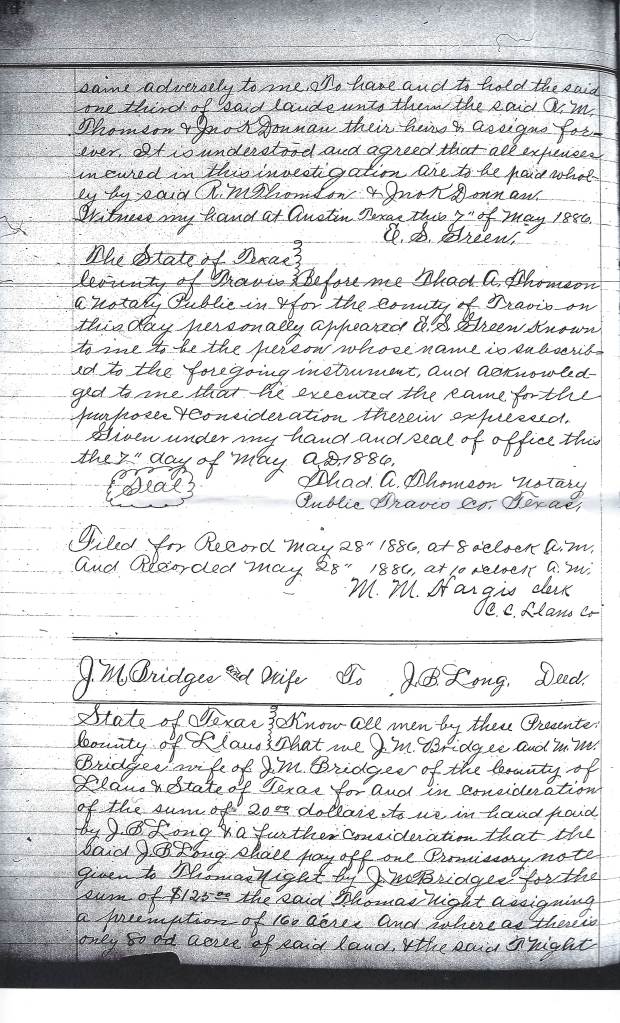 same adversely to me. To have and to hold the said
one third of said lands unto them the said R. M.
Thomson & Jno K Donnan their heirs & assigns for-
ever. It is understood and agreed that all expenses
incured in this investigation are to be paid whol-
ey by said R. M Thomson & Jno K Donnan.
Witness my hand at Austin Texas this 7" of May 1886.
E. S. Green.
The State of Texas
County of Travis Before me Thad A. Thomson
a Notary Public in & for the county of Travis on
this day personally appeared E. S Green Known
to me to be the person whose name is subscrib-
ed to the foregoing instrument, and acknowled-
ged to me that he executed the same for the
purposes & consideration therein expressed.
Given under my hand and seal of office this
the 7" day of May A.D. 1886.
Seal
Thad. A. Thomson Notary
Public Travis Co. Texas.
Filed for Record May 28" 1886, at 8 oclock A. M.
And Recorded May 28" 1886, at 10 oclock A. M.
M. M. Hargis clerk
C. C. Llano Co
J. M. Bridges and Wife To J. B. Long. Deed.
State of Texas Know all men by these Presents:
County of Llano That we J. M. Bridges and M. M.
Bridges wife of J. M. Bridges of the County of
Llano & State of Texas for and in consideration
of the sum of 20 00 dollars to us in hand paid
by J. B Long & a further consideration that the
said J. B Long shall pay off one Promissory note
given to Thomas Night by J. M Bridges for the
sum of $125 00 the said Thomas Night assigning
a preemption of 160 acres and where as there is
only 80 od acres of said land, & the said T Night